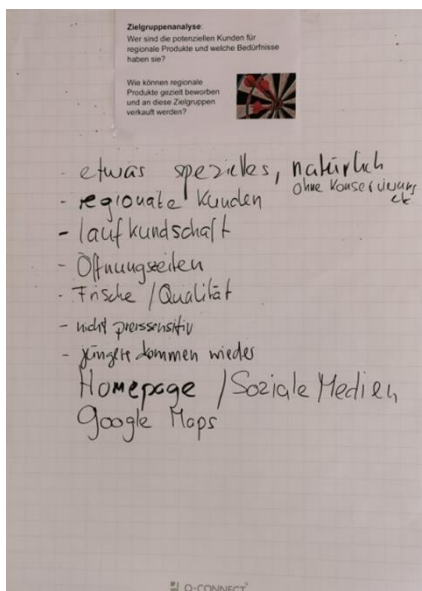 Zielgruppenanalyse:
Wer sind die potenziellen Kunden für
regionale Produkte und welche Bedürfnisse
haben sie?
Wie können regionale
Produkte gezielt beworben
und an diese Zielgruppen
verkauft werden?
- etwas spezielles, natürlich
ohne Konservierung
etc
- regionale Kunden
- laufkundschaft
- Öffnungszeiten
- Frische / Qualität
- nicht preissensitiv
- jüngere kommen wieder
Homepage / Soziale Medien
Google Maps
Q-CONNECT